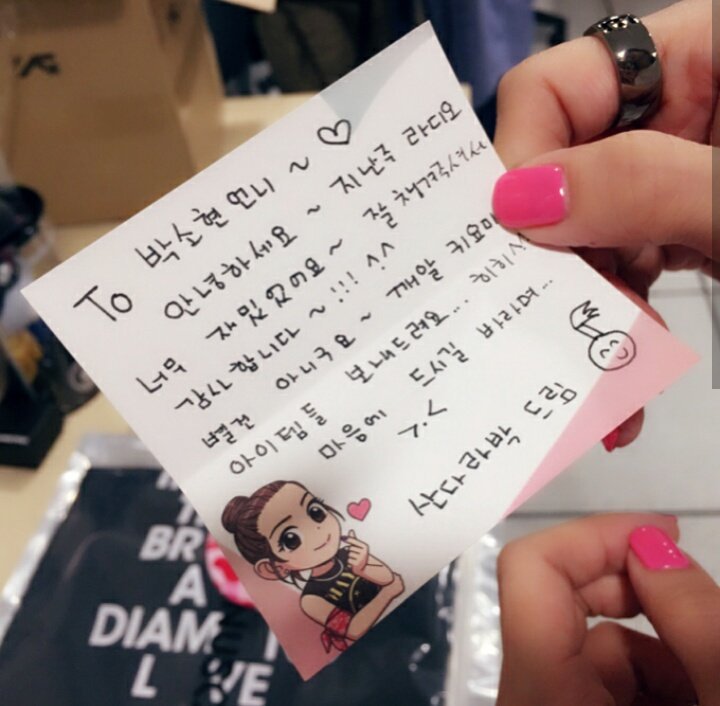 To 박소현 언니 ~ ♡
안녕하세요 ~ 지난주 라디오
너무 재밌었어요 ~ 잘 챙겨주셔서
감사합니다 ~ !!! ^^
별건 아니구요 ~ 깨알 키요미
아이템들 보내드려요... 히히
마음에 드시길 바라며...
산다라박 드림
YG
BR
A
DIAM
L VE